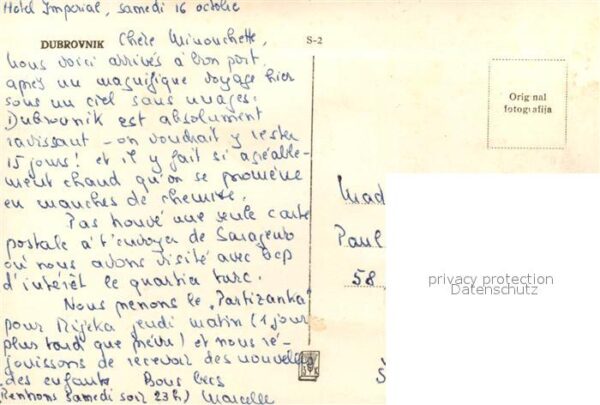 Hotel Imperial, samedi 16 octobre
DUBROVNIK Chère Minouchette,
S-2
Nous voici arrivés à bon port,
après un magnifique voyage hier
sous un ciel sans nuages.
Dubrovnik est absolument
ravissant – on voudrait y rester
15 jours! et il y fait si agréable-
ment chaud qu'on se promène
en manches de chemise.
Pas trouvé une seule carte
postale à t'envoyer de Sarajevo
où nous avons visité avec bcp
d'intérêt le quartier turc.
Nous prenons le "Partizanka"
pour Rijeka jeudi matin (1 jour
plus tard que prévu) et nous ré-
jouissons de recevoir des nouvelles
des enfants. Bons becs
(Rentrons samedi soir 23h) Marcelle
Orig nal
fotografija
Mad
Paul
58,
privacy protection
Datenschutz